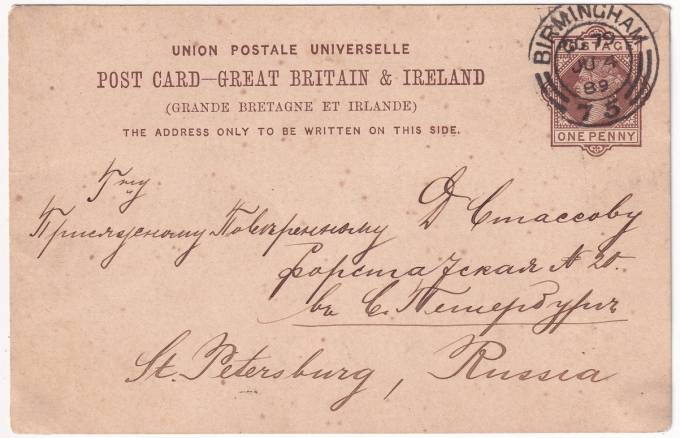 UNION POSTALE UNIVERSELLE
POST CARD—GREAT BRITAIN & IRELAND
(GRANDE BRETAGNE ET IRLANDE)
THE ADDRESS ONLY TO BE WRITTEN ON THIS SIDE.
BIRMINGHAM
JU 4
89
75
POSTAGE
ONE PENNY
Гну
Присяжному Повѣренному Д Стассову
Фурстатская № 20.
въ С. Петербургъ
St. Petersburg, Russia